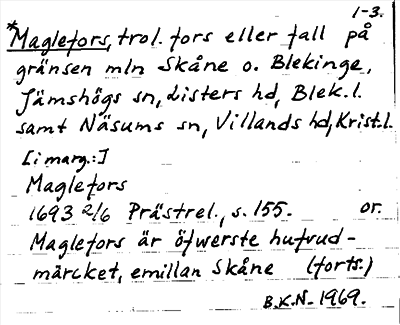 1-3.
*Maglefors, trol. fors eller fall på
gränsen mln Skåne o. Blekinge,
Jämshögs sn, Listers hd, Blek. l.
samt Näsums sn, Villands hd, Krist. l.
[i marg.:]
Maglefors
1693 2/6 Prästrel., s. 155. or.
Maglefors är öfwerste hufvud-
märcket, emillan Skåne (forts.)
B.K.N. 1969.